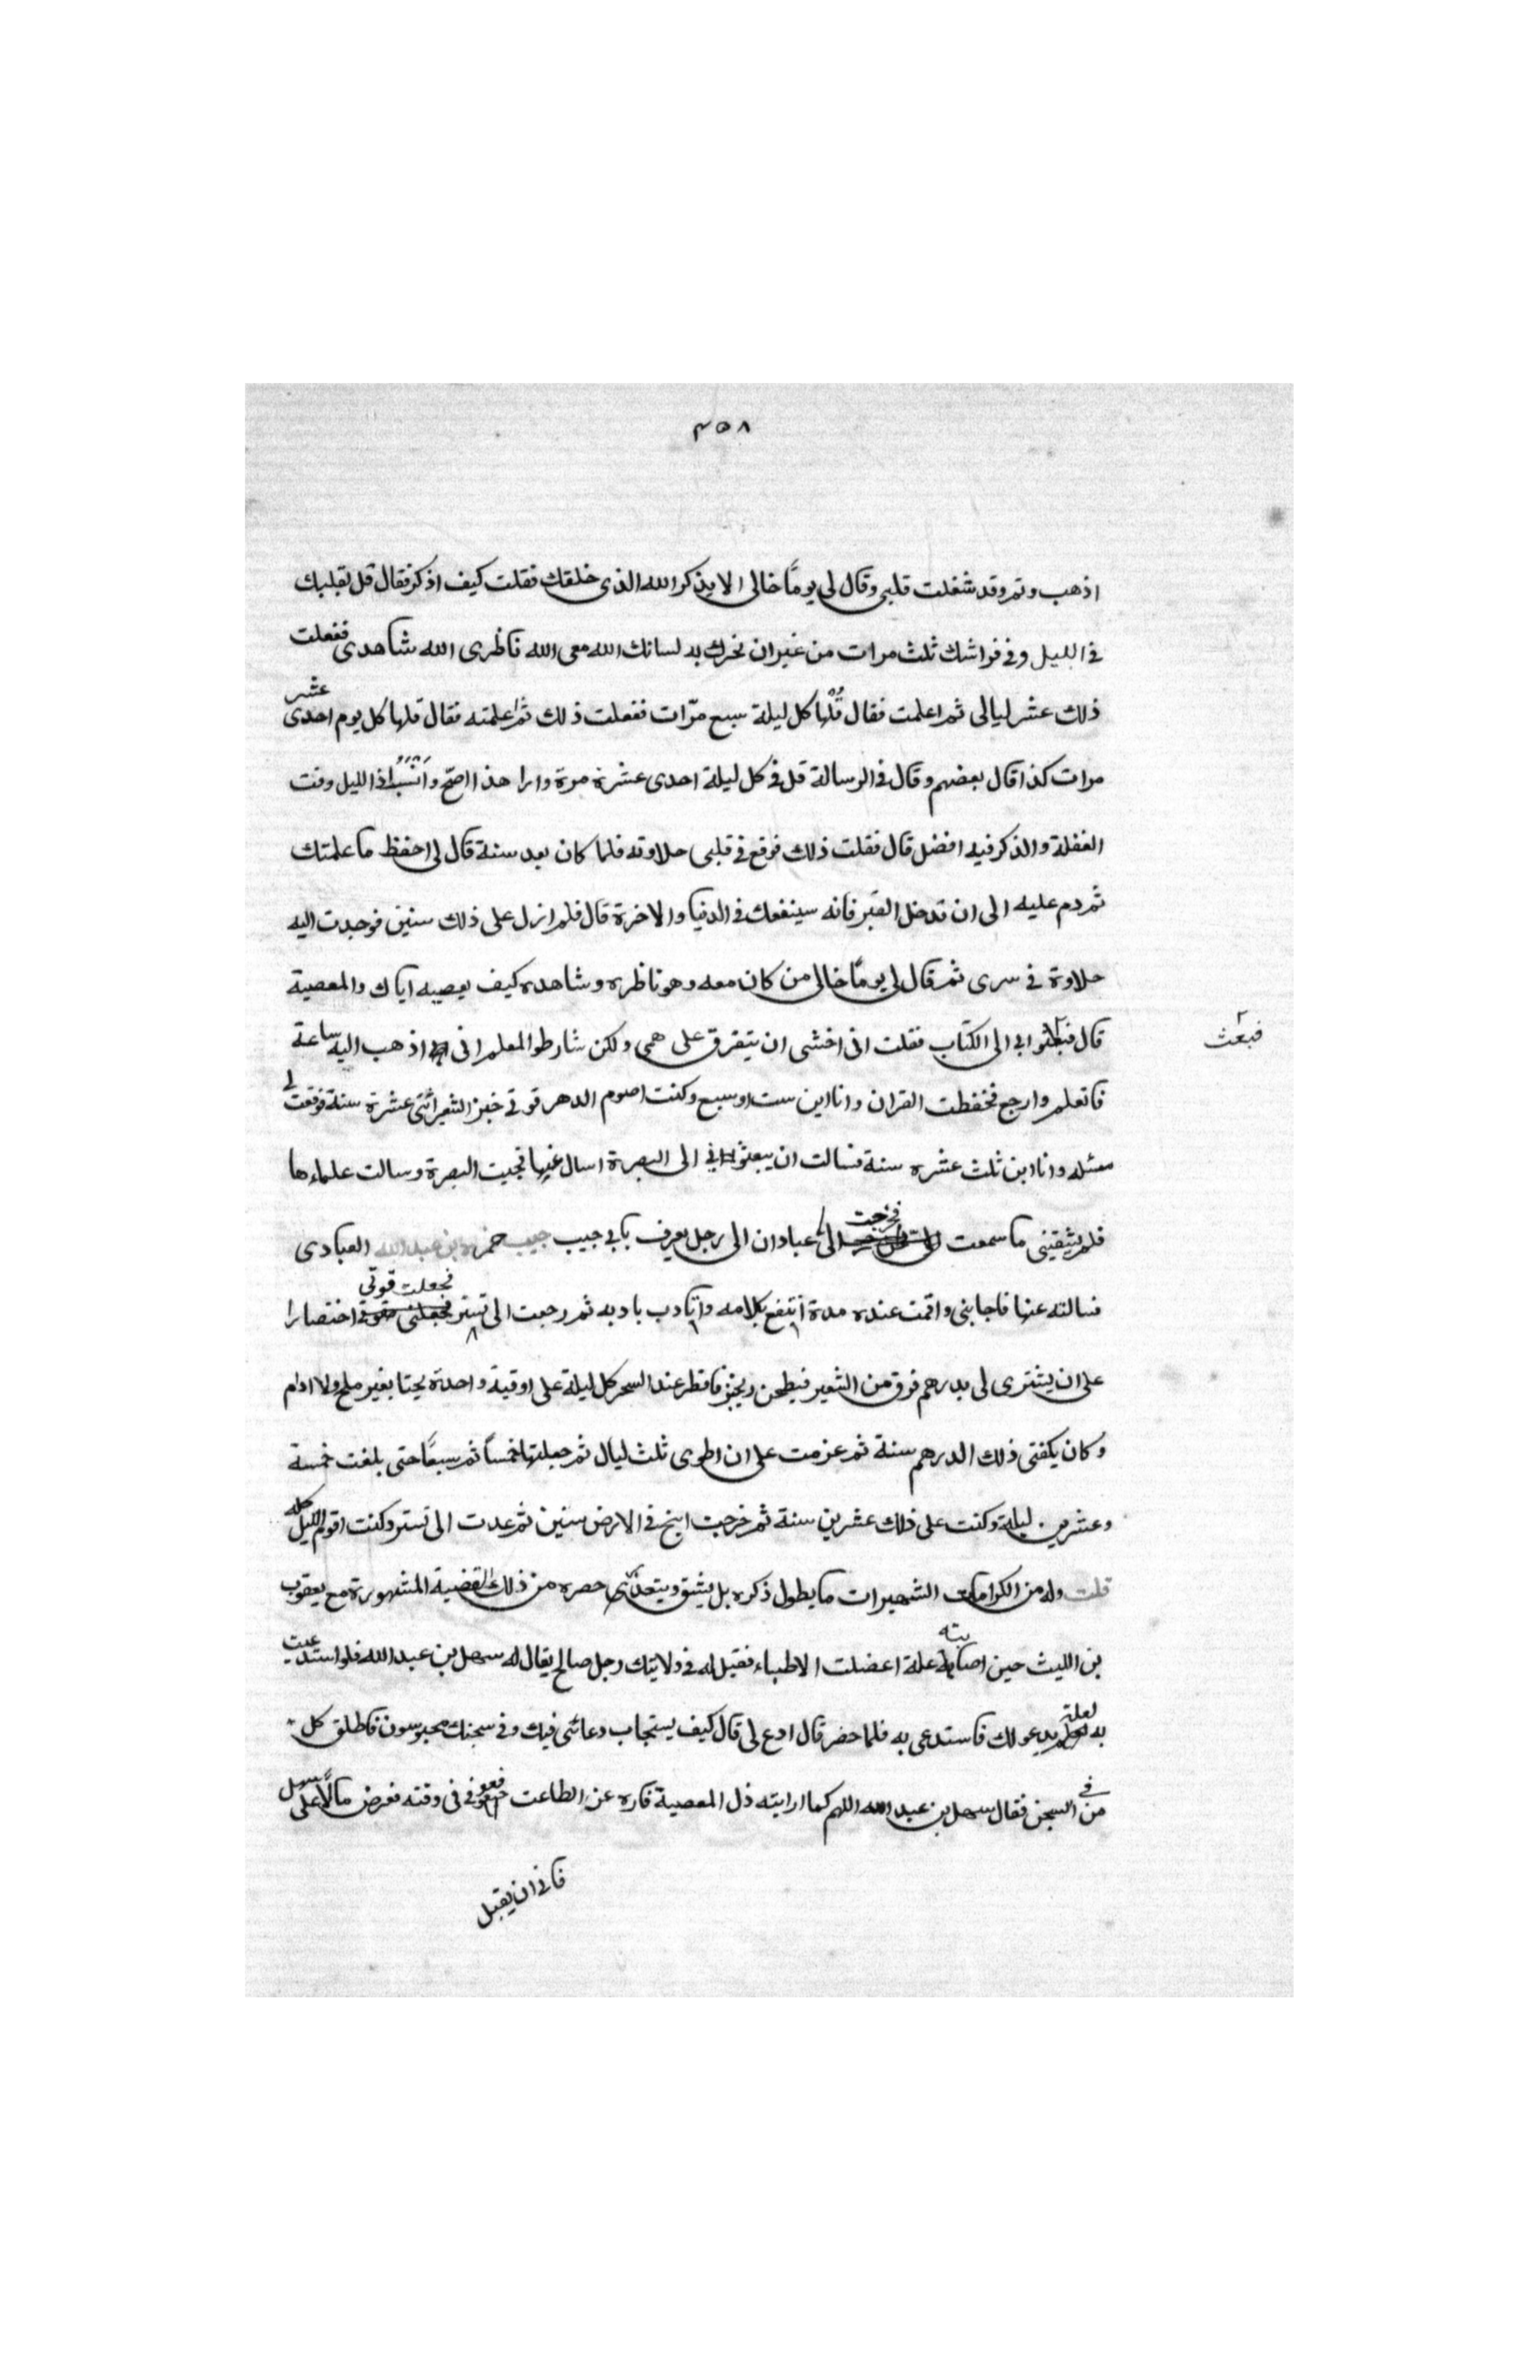 ٣٥٨
اذهب ونم وقد شغلت قلبى وقال لى يومًا خالى الا يذكر الله الذى خلقك فقلت كيف اذكر فقال قل بقلبك
فى الليل وفى فراشك ثلث مرات من غير ان تحرك به لسانك الله معى الله ناظرى الله شاهدى ففعلت
ذلك عشر ليالى ثم اعلمت فقال قُلها كل ليلة سبع مرّات ففعلت ذلك ثم اعلمته فقال قلها كل يوم احدى عشر
مرات كذا قال بعضهم وقال فى الرسالة قل فى كل ليلة احدى عشرة مرة وارا هذا اصّح وانسب اذ الليل وقت
الغفلة والذكر فيه افضل قال فقلت ذلك فوقع فى قلبى حلاوته فلما كان بعد سنة قال لى احفظ ما علمتك
ثم دم عليه الى ان تدخل القبر فانه سينفعك فى الدنيا والاخرة قال فلم ازل على ذلك سنين فوجدت اليه
حلاوة فى سرى ثم قال لى يومًا خالى من كان معه وهو ناظره وشاهده كيف يعصيه اياك والمعصية
قال فبعثوا بى الى الكتّاب فقلت انى اخشى ان يتفرق على همى ولكن شارطوا المعلم انى اذهب اليه ساعة
فبعث
فاتعلم وارجع فحفظت القران وانا ابن ست او سبع وكنت اصوم الدهر قوتى خبز الشعير اثنتى عشرة سنة فوقعت لى
مسئله وانا ابن ثلث عشره سنة فسالت ان يبعثوا بى الى البصرة اسال عنها فجيت البصرة وسالت علماءها
فلم يشقينى ما سمعت فخرجت الى عبادان الى رجل يعرف بابى حبيب حبيب حمزه بن عبد الله العبادى
فسالته عنها فاجابنى واقمت عنده مدة انتفع بكلامه واتادب بادبه ثم رجعت الى تستر فجعلت قوتى اختصارا
على ان يشترى لى بدرهم فرق من الشعير فيطحن ويخبز فافطر عند السحر كل ليلة على اوقية واحدة بحتا بغير ملح ولا ادام
وكان يكفنى ذلك الدرهم سنة ثم عزمت على ان اطوى ثلث ليال ثم جعلتها خمساً ثم سبعًا حتى بلغت خمسة
وعشرين ليلة وكنت على ذلك عشرين سنة ثم خرجت اسيح فى الارض سنين ثم عدت الى تستر وكنت اقوم الليل كله
قلت وله من الكرامات الشهيرات ما يطول ذكره بل يشق ويتعذر حصره من ذلك القضية المشهورة مع يعقوب
بن الليث حين اصابته علة اعضلت الاطباء فقيل له فى ولايتك رجل صالح يقال له سهل بن عبد الله فلو استدعيت
به لعله يدعو لك فاستدعى به فلما حضر قال ادع لى قال كيف يستجاب دعائى فيك وفى سجنك محبوسون فاطلق كل
من فى السجن فقال سهل بن عبد الله اللهم كما اريته ذل المعصية فاره عز الطاعت فعوفى فى وقته فعرض مالًا على سهل
فابى ان يقبل